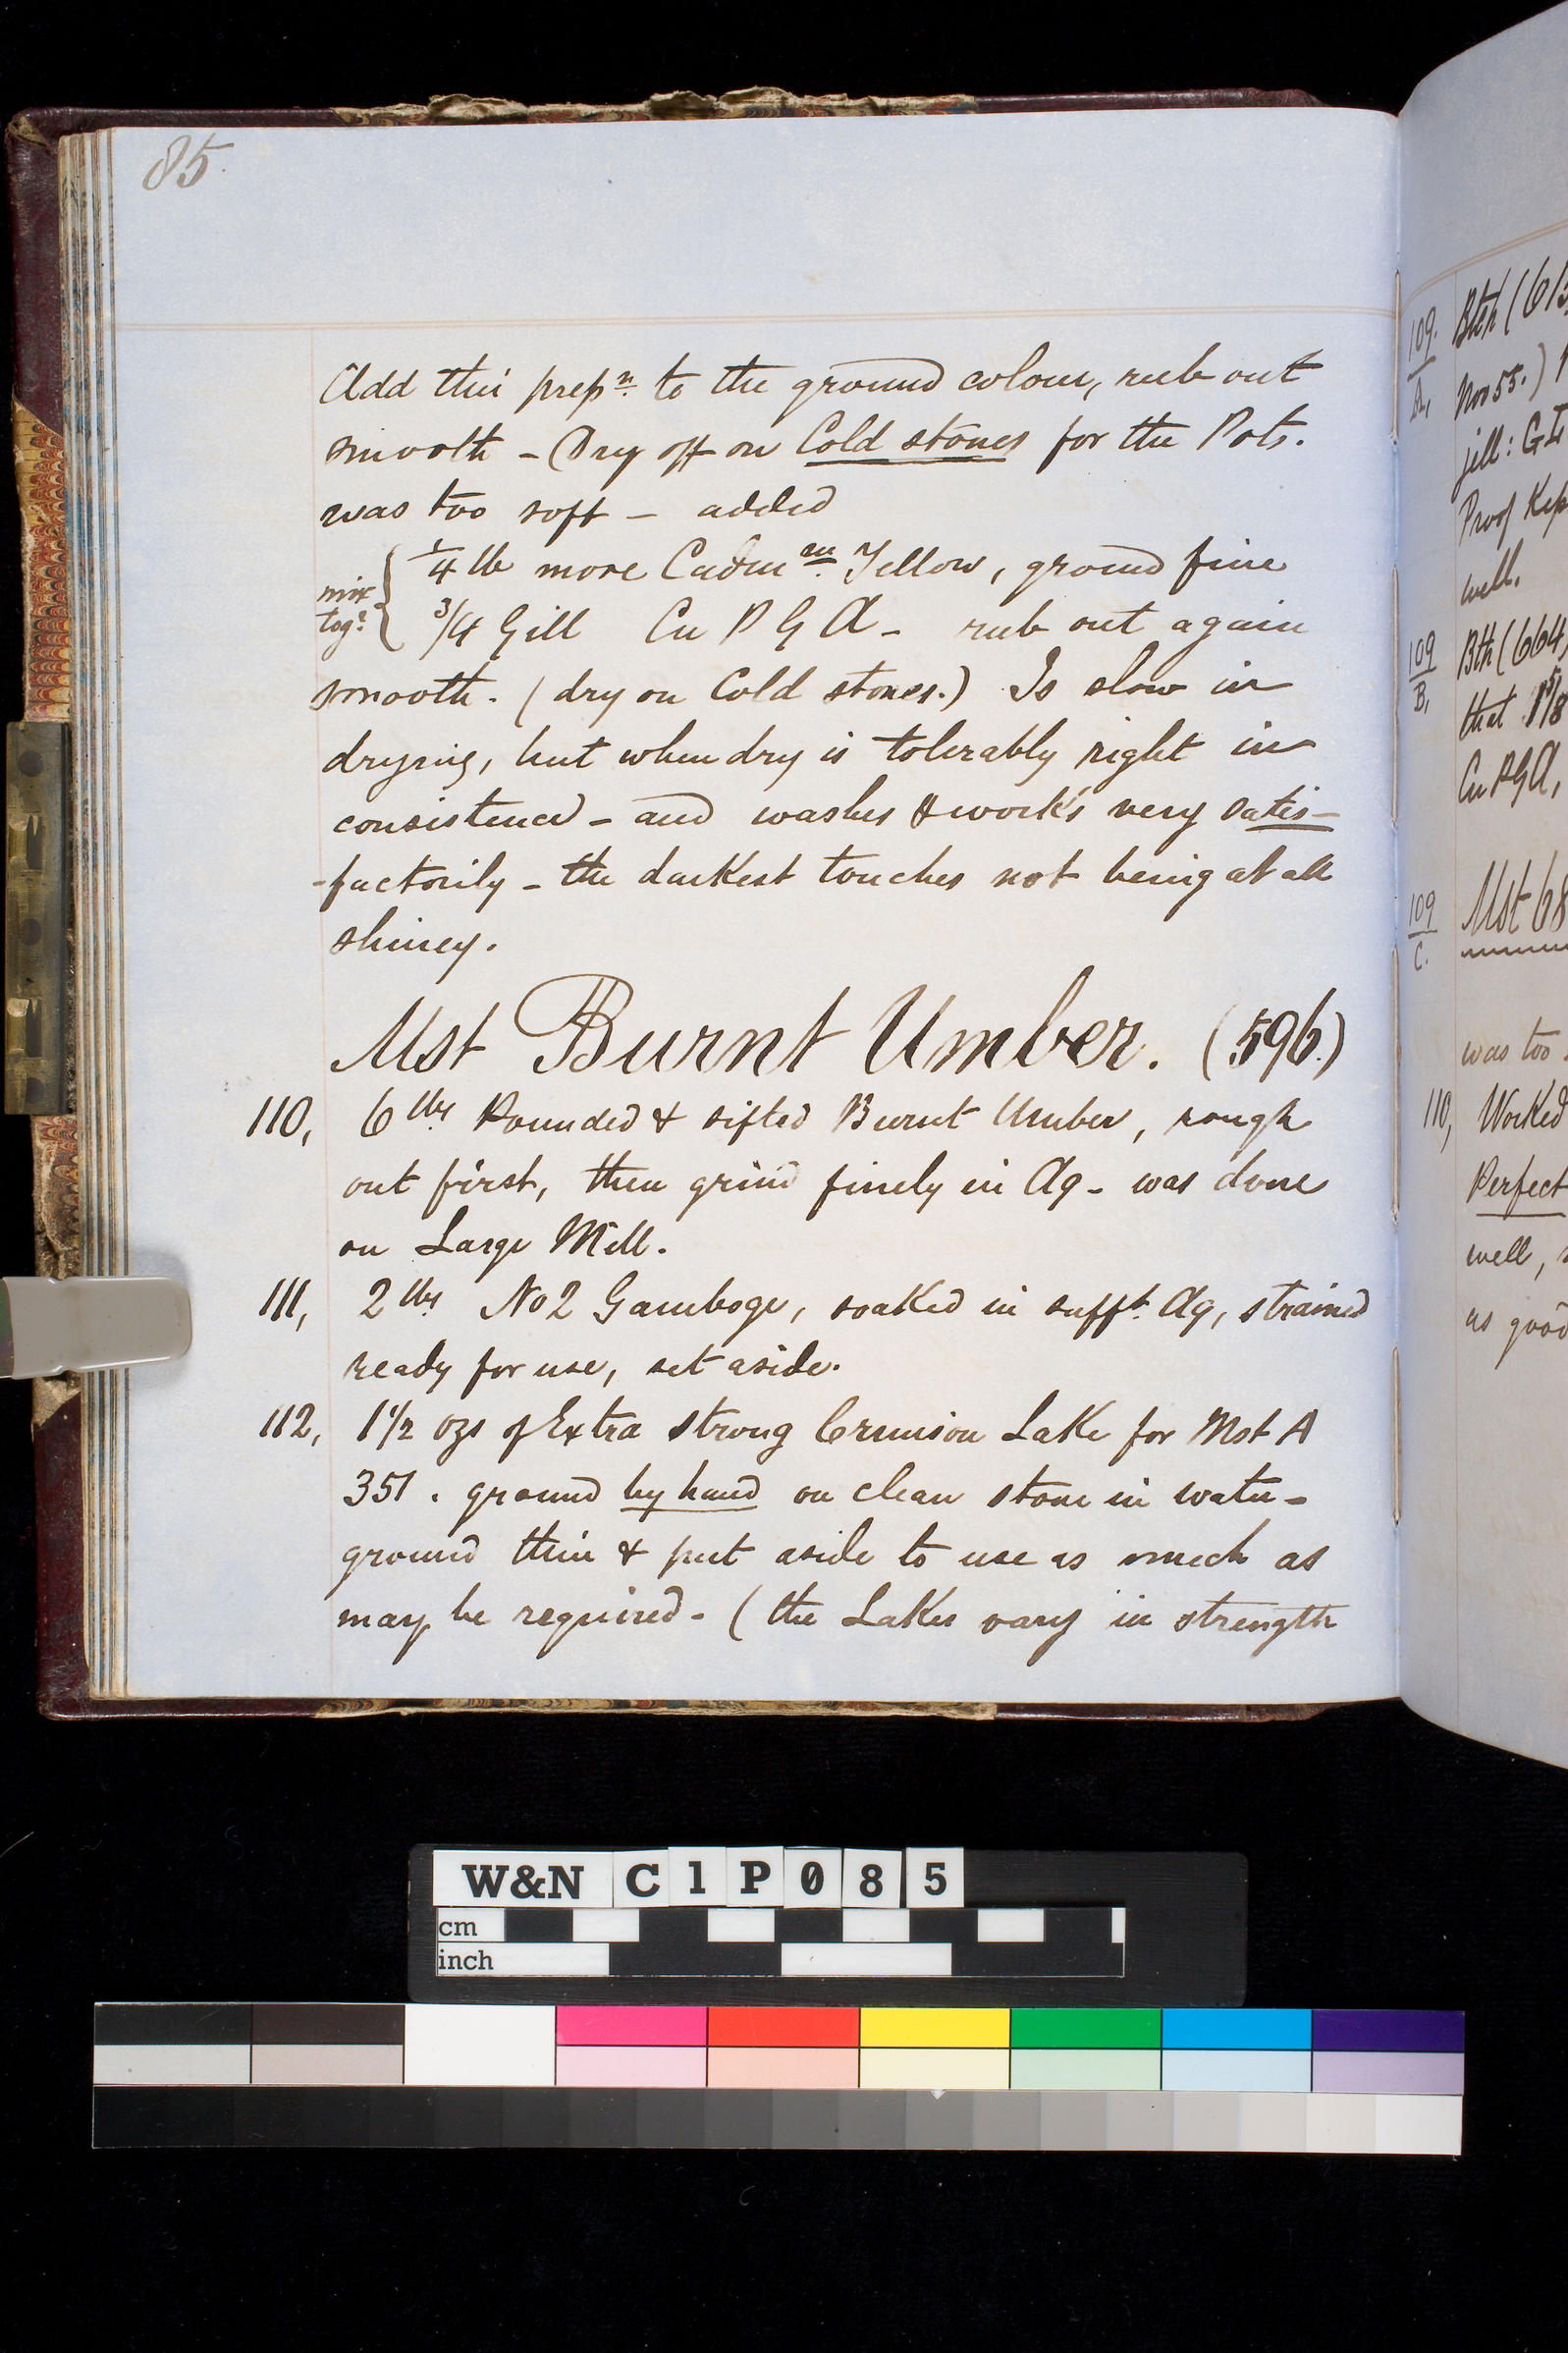 85.
Add this prepn. to the ground colour, rub out
smooth - Dry off on Cold stones for the Pots.
was too soft - added
mix togr. { 1/4 lb more Cadmm. Yellow, ground fine
3/4 Gill Cu P G A - rub out again
smooth. (dry on Cold stones.) Is slow in
drying, but when dry is tolerably right in
consistence - and washes & works very satis-
-factorily - the darkest touches not being at all
shiney.
Mst Burnt Umber. (596.)
110, 6 lbs Pounded & sifted Burnt Umber, rough
out first, then grind finely in Aq - was done
on Large Mill.
111, 2 lbs No 2 Gamboge, soaked in sufft. Aq, strained
ready for use, set aside.
112, 1 1/2 ozs of Extra strong Crimson Lake for Mst A
351. ground by hand on clean stone in water -
ground thin & put aside to use as much as
may be required - (the Lakes vary in strength
109. A,
Bth (61
Nos 55.)
jill: G
Proof Kep
well.
109 B,
Bth (664,
that 1 5/8
Cu P G A,
109 C.
Mst 68
was too
110, Worked
Perfect
well,
as good
W&N C1P085
cm
inch